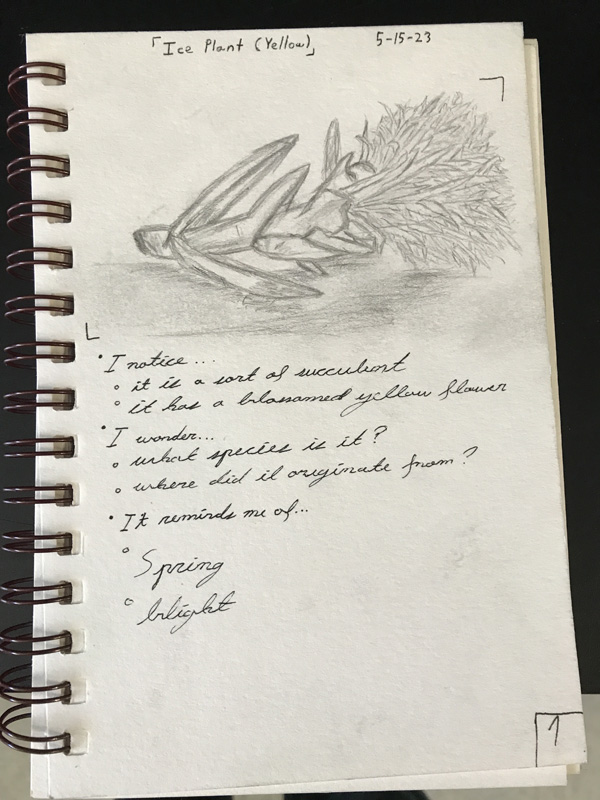 「Ice Plant (Yellow)」 5-15-23
• I notice...
◦ it is a sort of succulent
◦ it has a blossamed yellow flower
• I wonder...
◦ what species is it?
◦ where did it originate from?
• It reminds me of...
◦ Spring
◦ blight
1